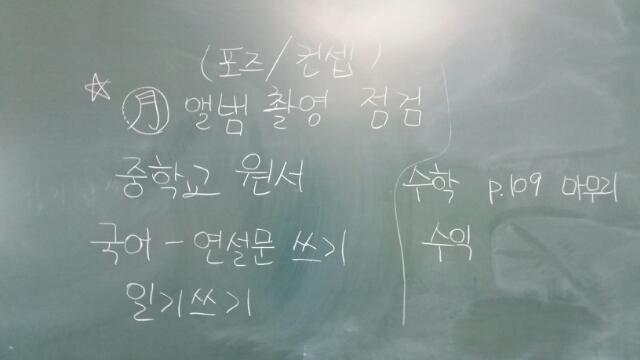 (포즈/컨셉)
☆ 月 앨범 촬영 점검
중학교 원서
국어 - 연설문 쓰기
일기쓰기
수학 p.109 마무리
수익